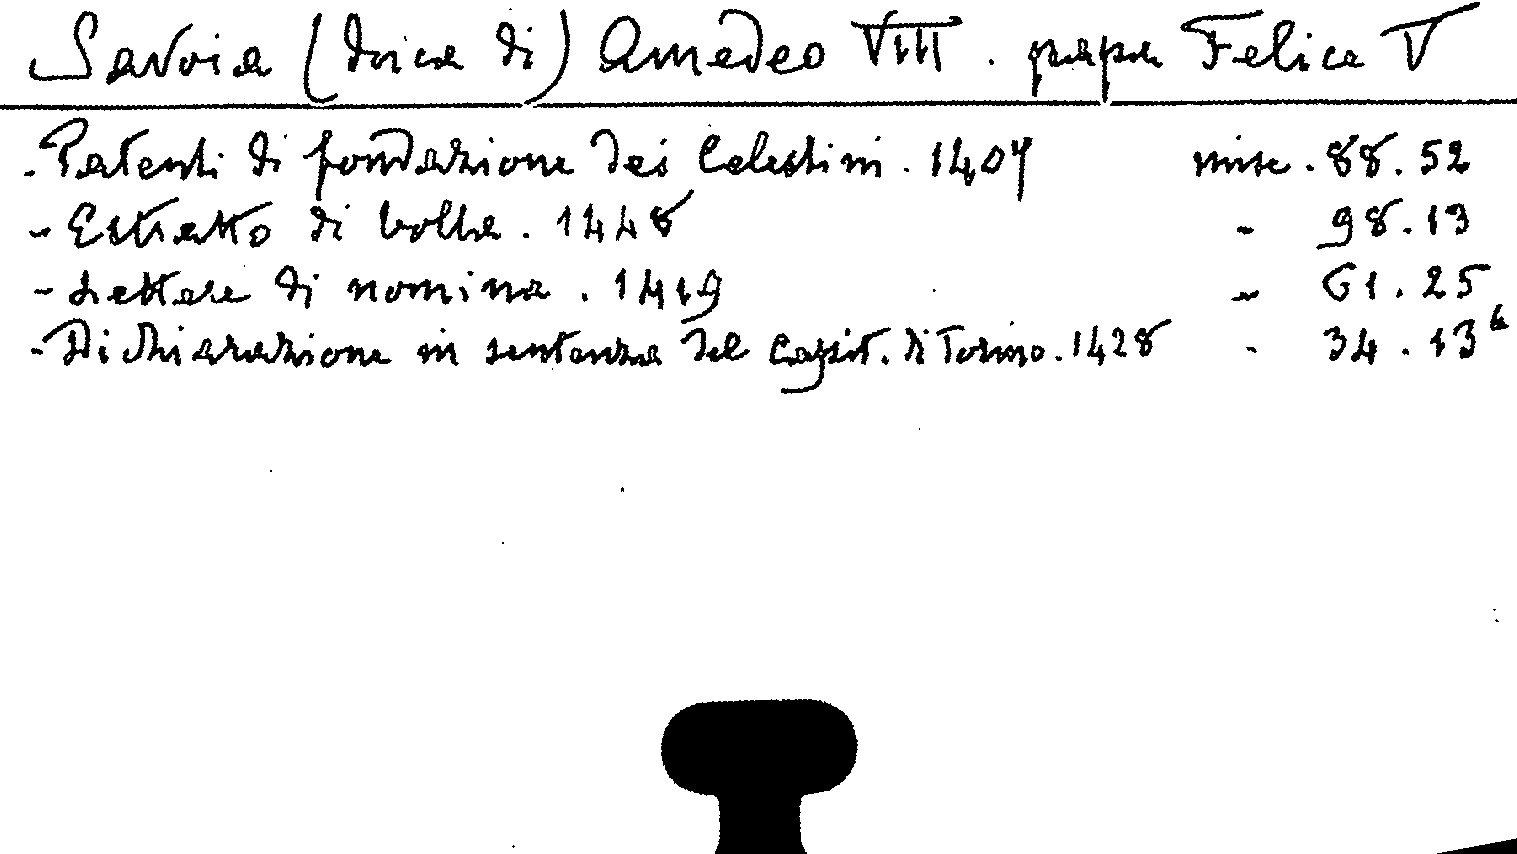 Savoia (duca di) Amedeo VIII. papa Felice V
- Patenti di fondazione dei Celestini. 1407 misc. 88. 52
- Estratto di bolla. 1448 - 98. 13
- Lettere di nomina. 1419 - 61. 25
- Dichiarazione in sentenza del capit. di Torino. 1428 - 34. 13 b